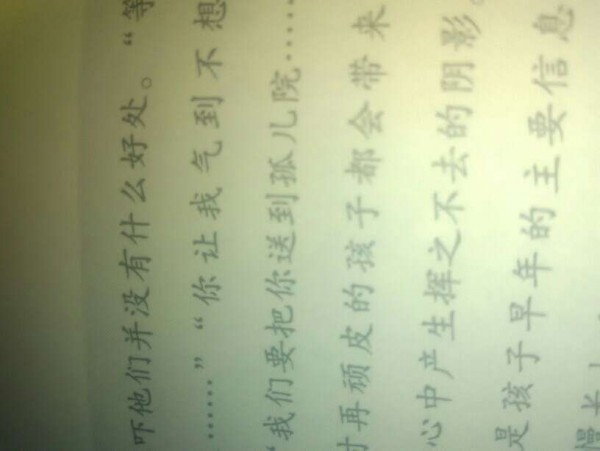 吓他们并没有什么好处。“等
……”“你让我气到不想
“我们要把你送到孤儿院……
再顽皮的孩子都会带来
心中产生挥之不去的阴影。
是孩子早年的主要信息